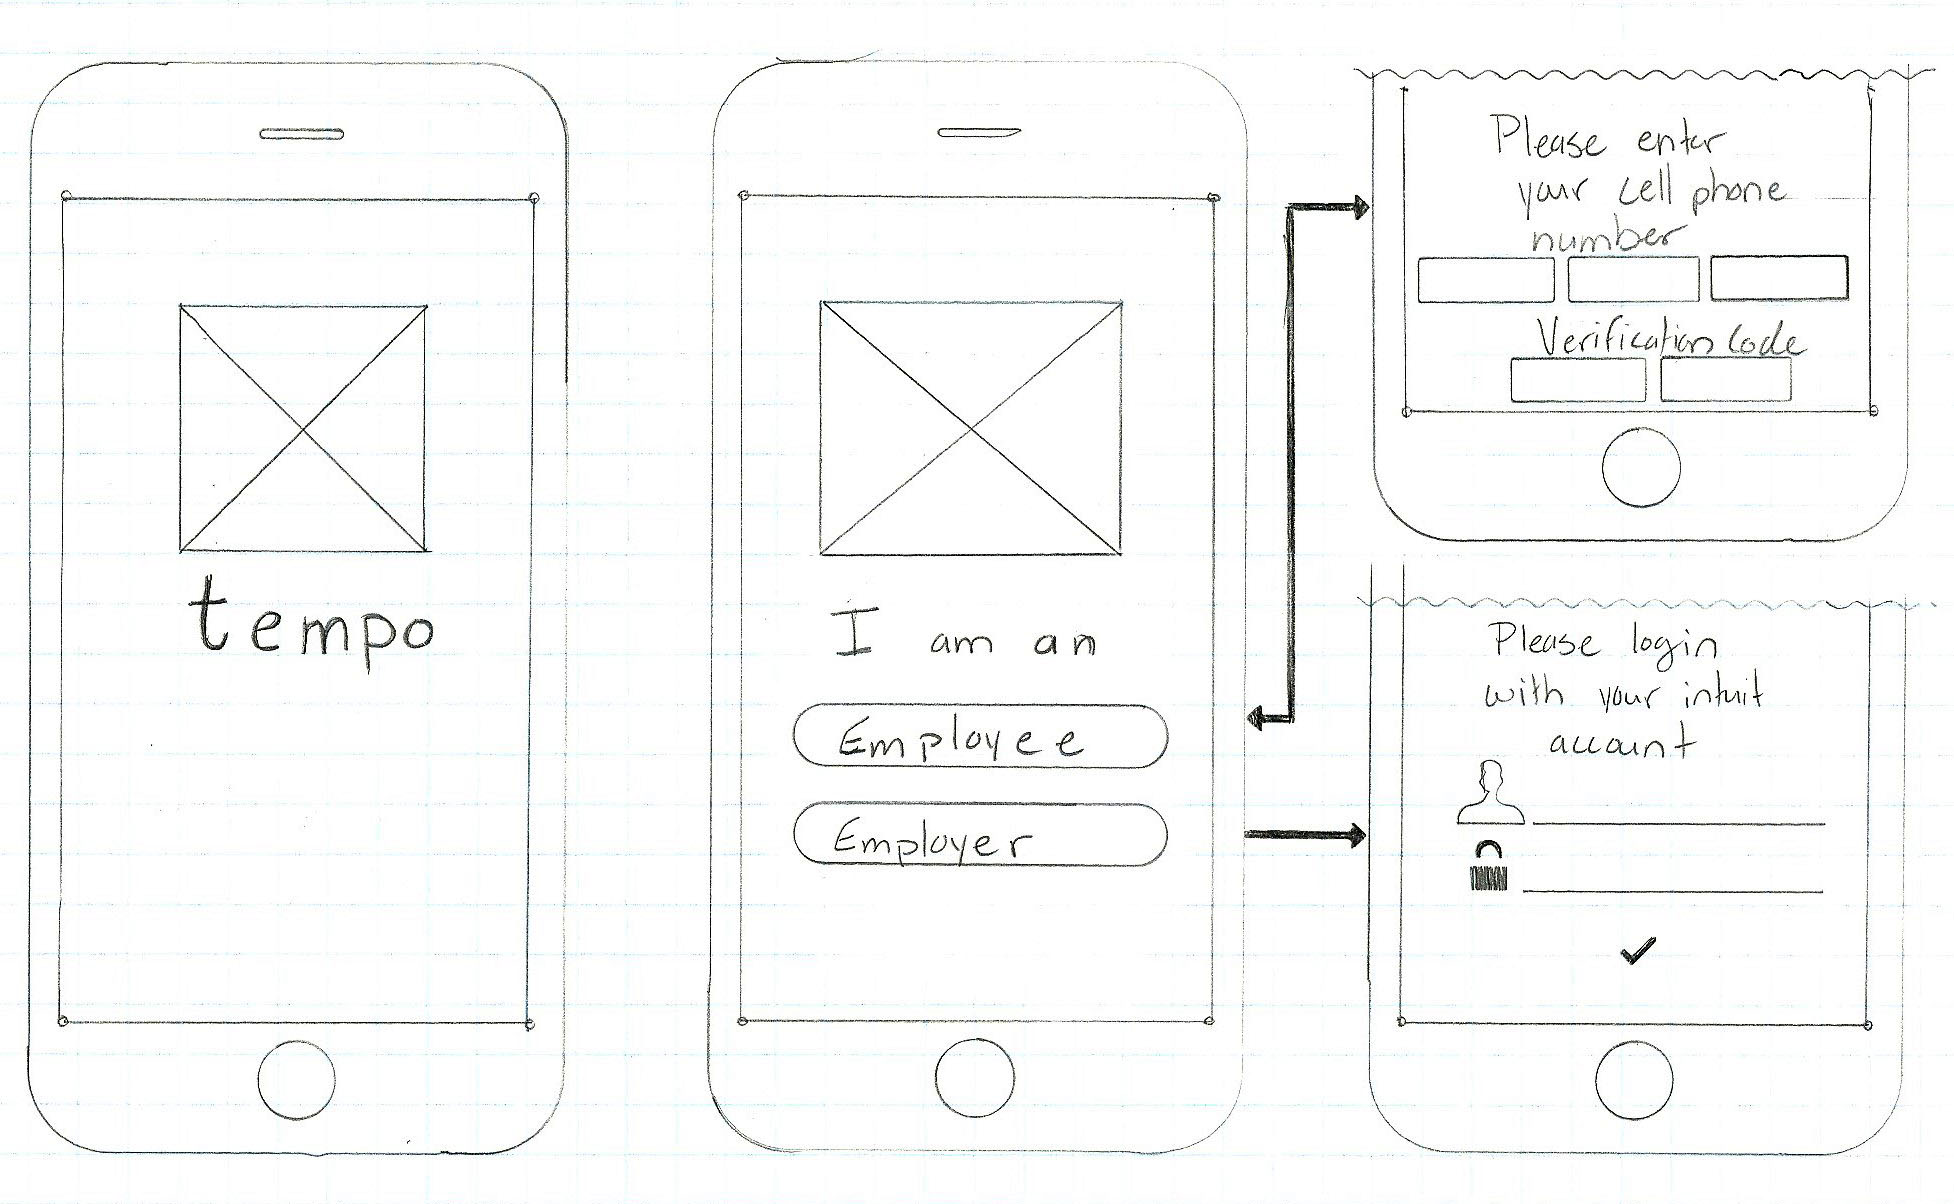 tempo
I am an
Employee
Employer
Please enter
your cell phone
number
Verification Code
Please login
with your intuit
account